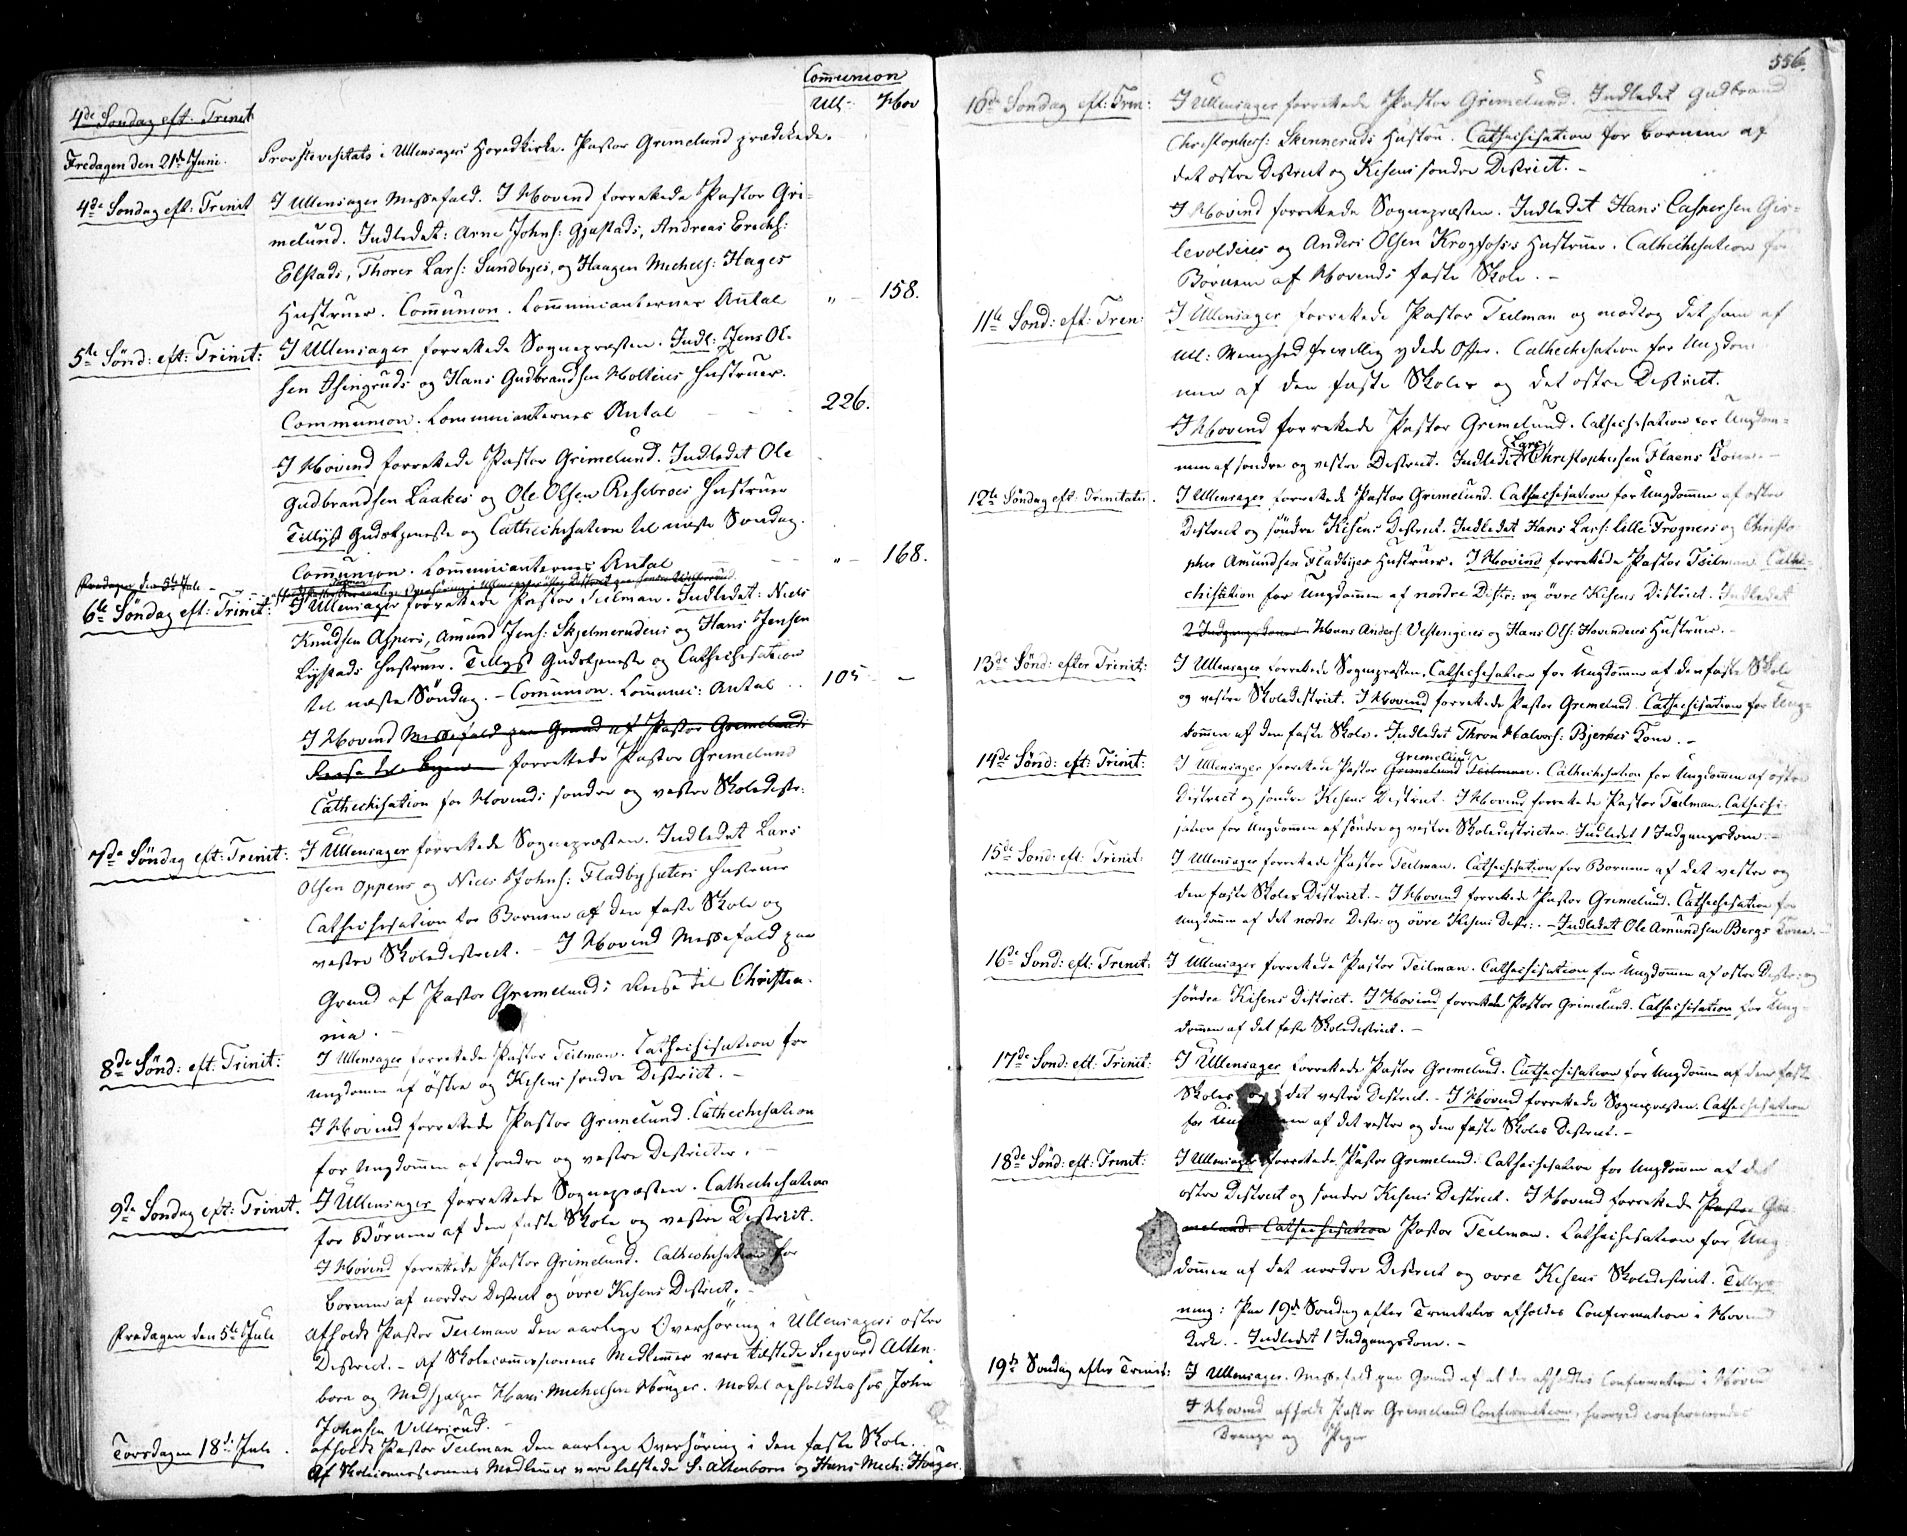 Communion
Ull: Hov
4de Søndag eft: Trinit
Fredagen den 21de Juni. Provstevisitats i Ullensagers Hovedkirke. Pastor Grimelund prædikede.
4de Søndag eft: Trinit I Ullensager Messefald. I Hovind forrettede Pastor Gri-
melund. Indledet: Arne Johns: Gjestads, Andreas Erichs:
Elstads, Thorer Lars: Sundbyes, og Haagen Michels: Hages
Hustruer. Communion. Communicanternes Antal " – 158.
5te Sønd: eft: Trinit: I Ullensager forrettede Sognepræsten. Indl: Jens Ol-
sen Asengruds og Hans Gudbrandsen Holties Hustruer.
Communion. Communicanternes Antal – – – 226.
I Hovind forrettede Pastor Grimelund. Indledet Ole
Gudbrandsen Laakes og Ole Olsen Risebroes Hustruer
Tillyst Gudstjeneste og Cathechisation til næste Søndag.
Communion. Communicanternes Antal – – " – 168.
Fredagen den 5te Juli –
6te Søndag eft: Trinit: I Ullensager forrettede Pastor Teilman. Indledet: Niels
Knudsen Aspers, Amund Jens: Skjelmerudens og Hans Jensen
Lystads Hustruer. Tillyst Gudstjeneste og Cathechisation
til næste Søndag. – Comunion. Commun: Antal .. 105 –
I Hovind Messefald paa Grund af Pastor Grimelunds
Reise til Byen – forrettede Pastor Grimelund
Cathechisation for Hovinds søndre og vestre Skoledistr:
7de Søndag eft: Trinit: I Ullensager forrettede Sognepræsten. Indledet Lars
Olsen Oppens og Niels Johns: Fladbysæters Hustruer
Cathechisation for Børnene af den faste Skole og
vestre Skoledistrict. – I Hovind Messefald paa
Grund af Pastor Grimelunds Reise til Christia-
nia. –
8de Sønd: eft: Trinit: I Ullensager forrettede Pastor Teilman. Cathechisation for
Ungdomen af østre og Kisens søndre District. –
I Hovind forrettede Pastor Grimelund. Cathechisation
for Ungdommen af søndre og vestre Districter. –
9de Søndag eft: Trinit. I Ullensager forrettede Sognepræsten. Cathechisation
for Børnene af den faste Skole og vestre District.
I Hovind forrettede Pastor Grimelund. Cathechisation for
Børnene af nordre District og øvre Kisens District. –
Fredagen den 5te Juli afholdt Pastor Teilman den aarlige Overhøring i Ullensagers østre
District. – Af Skolecommissionens Medlemmer vare tilstede Siegvard Alten-
born og Medhjælper Hans Michelsen Houger. Mødet afholdtes hos John
Johnsen Villerud.
Torsdagen 18de Juli. afholdt Pastor Teilman den aarlige Overhøring i den faste Skole.
Af Skolecommissionens Medlemmer vare tilstede S. Altenborn og Hans Mich: Houger.
556.
10de Søndag eft: Trin: I Ullensager forrettede Pastor Grimelund. Indledet Gudbrand
Christophers: Skinneruds Hustru. Cathechisation for Børnene af
det østre District og Kisens søndre District. –
I Hovind forrettede Sognepræsten. Indledet Hans Caspersen Gis-
levoldeies og Anders Olsen Krogfoss's Hustruer. Cathechisation for
Børnene af Hovinds faste Skole. –
11te Sønd: eft: Trin: I Ullensager forrettede Pastor Teilman og modtog det ham af
Ull: Menighed frivillig ydede Offer. Cathechisation for Ungdom
men af den faste Skoles og det østre District.
I Hovind forrettede Pastor Grimelund. Cathechisation for Ungdom-
men af søndre og vestre District. Indledet Lars Christophersen Flaens Kone. –
12te Søndag eft: Trinitatis. I Ullensager forrettede Pastor Grimelund. Cathechisation for Ungdommen af østre
District og søndre Kisens District. Indledet Hans Lars: lille Frogners og Christo
pher Amundsen Fladbyes Hustruer. I Hovind forrettede Pastor Teilman. Cathe-
chisation for Ungdommen af nordre Distr: og øvre Kisens District. Indledet
2 Indgangskoner Hans Anders: Vestengens og Hans Ols: Hovindeies Hustruer. –
13de Sønd: efter Trinit: I Ullensager forrettede Sognepræsten. Cathechisation for Ungdommen af den faste Skole
og vestre Skoledistrict. I Hovind forrettede Pastor Grimelund. Cathechisation for Ung-
dommen af den faste Skole. Indledet Thron Halvors: Bjerkes Kone. –
Grimelund
14de Sønd: eft: Trinit: I Ullensager forrettede Pastor Grimelund Teilman. Cathechisation for Ungdommen af østre
District og søndre Kisens District. I Hovind forrettede Pastor Teilman. Cathechi
sation for Ungdommen af søndre og vestre Skoledistricter. Indledet 1 Indgangskone. –
15de Sønd: eft: Trinit: I Ullensager forrettede Pastor Teilman. Cathechisation for Børnene af det vestre og
den faste Skoles District. – I Hovind forrettede Pastor Grimelund. Cathechisation for
Ungdommen af det nordre Distr: og øvre Kisens Distr: – Indledet Ole Amundsen Bergs Kone. –
16de Sønd: eft: Trinit: I Ullensager forrettede Pastor Teilman. Cathechisation for Ungdommen af østre Distr: og
søndre Kisens District. I Hovind forrettede Pastor Grimelund. Cathechisation for Ung-
dommen af det faste Skoledistrict. –
17de Sønd: eft: Trinit: I Ullensager forrettede Pastor Grimelund. Cathechisation for Ungdommen af den faste
Skoles og det vestre District. – I Hovind forrettede Sognepræsten. Cathechisation
for Ungdommen af det vestre og den faste Skoles District. –
18de Sønd: eft: Trinit: I Ullensager forrettede Pastor Grimelund. Cathechisation for Ungdommen af det
østre District og søndre Kisens District. I Hovind forrettede Pastor Gri-
melund. Cathechisation Pastor Teilman. Cathechisation for Ung
dommen af det nordre District og øvre Kisens Skoledistrict. Tillys-
ning: Paa 19de Søndag efter Trinitatis afholdes Confirmation i Hovind
Kirke. – Indledet 1 Indgangskone. –
19de Søndag efter Trinit: I Ullensager. Messefald paa Grund af at der afholdtes Confirmation i Hovind
I Hovind afholdt Pastor Grimelund Confirmation, hvorved confirmeredes
Drenge og Piger